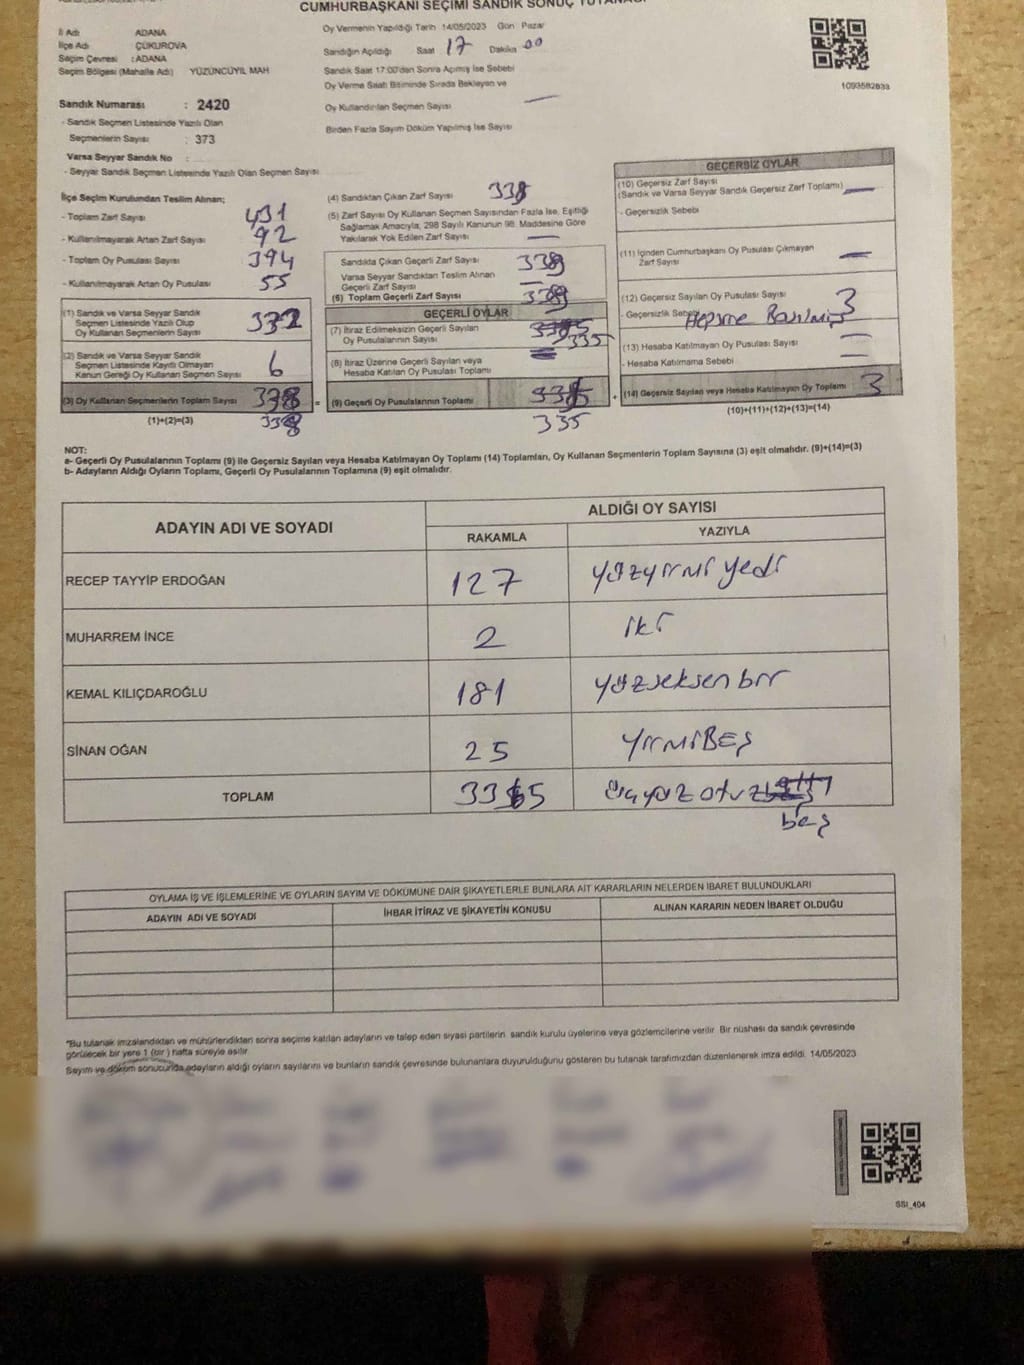 CUMHURBAŞKANI SEÇİMİ SANDIK SONUÇ TUTANAĞI
İl Adı ADANA
İlçe Adı ÇUKUROVA
Seçim Çevresi : ADANA
Seçim Bölgesi (Mahalle Adı) YÜZÜNCÜYIL MAH
Oy Vermenin Yapıldığı Tarih 14/05/2023 Gün Pazar
Sandığın Açıldığı Saat 17 Dakika 00
Sandık Saat 17:00'den Sonra Açılmış İse Sebebi
Oy Verme Saati Bitiminde Sırada Bekleyen ve
Oy Kullandırılan Seçmen Sayısı —
Birden Fazla Sayım Döküm Yapılmış İse Sayısı
1093582833
Sandık Numarası : 2420
- Sandık Seçmen Listesinde Yazılı Olan
Seçmenlerin Sayısı : 373
Varsa Seyyar Sandık No :
- Seyyar Sandık Seçmen Listesinde Yazılı Olan Seçmen Sayısı :
İlçe Seçim Kurulundan Teslim Alınan;
- Toplam Zarf Sayısı 431
- Kullanılmayarak Artan Zarf Sayısı 92
- Toplam Oy Pusulası Sayısı 394
- Kullanılmayarak Artan Oy Pusulası 55
(1) Sandık ve Varsa Seyyar Sandık
Seçmen Listesinde Yazılı Olup
Oy Kullanan Seçmenlerin Sayısı
(2) Sandık ve Varsa Seyyar Sandık
Seçmen Listesinde Kayıtlı Olmayan
Kanun Gereği Oy Kullanan Seçmen Sayısı 6
(3) Oy Kullanan Seçmenlerin Toplam Sayısı
(1)+(2)=(3) 338
(4) Sandıktan Çıkan Zarf Sayısı 338
(5) Zarf Sayısı Oy Kullanan Seçmen Sayısından Fazla İse, Eşitliği
Sağlamak Amacıyla, 298 Sayılı Kanunun 98. Maddesine Göre
Yakılarak Yok Edilen Zarf Sayısı —
Sandıkta Çıkan Geçerli Zarf Sayısı 338
Varsa Seyyar Sandıktan Teslim Alınan
Geçerli Zarf Sayısı —
(6) Toplam Geçerli Zarf Sayısı 338
GEÇERLİ OYLAR
(7) İtiraz Edilmeksizin Geçerli Sayılan
Oy Pusulalarının Sayısı 335
(8) İtiraz Üzerine Geçerli Sayılan veya
Hesaba Katılan Oy Pusulası Toplamı
(9) Geçerli Oy Pusulalarının Toplamı
335
GEÇERSİZ OYLAR
(10) Geçersiz Zarf Sayısı
(Sandık ve Varsa Seyyar Sandık Geçersiz Zarf Toplamı) —
- Geçersizlik Sebebi
(11) İçinden Cumhurbaşkanı Oy Pusulası Çıkmayan
Zarf Sayısı —
(12) Geçersiz Sayılan Oy Pusulası Sayısı 3
- Geçersizlik Sebebi
(13) Hesaba Katılmayan Oy Pusulası Sayısı —
- Hesaba Katılmama Sebebi —
(14) Geçersiz Sayılan veya Hesaba Katılmayan Oy Toplamı 3
(10)+(11)+(12)+(13)=(14)
NOT:
a- Geçerli Oy Pusulalarının Toplamı (9) ile Geçersiz Sayılan veya Hesaba Katılmayan Oy Toplamı (14) Toplamları, Oy Kullanan Seçmenlerin Toplam Sayısına (3) eşit olmalıdır. (9)+(14)=(3)
b- Adayların Aldığı Oyların Toplamı, Geçerli Oy Pusulalarının Toplamına (9) eşit olmalıdır.
ADAYIN ADI VE SOYADI ALDIĞI OY SAYISI
RAKAMLA YAZIYLA
RECEP TAYYİP ERDOĞAN 127 yüzyirmi yedi
MUHARREM İNCE 2 iki
KEMAL KILIÇDAROĞLU 181 yüzseksen bir
SİNAN OĞAN 25 YirmiBEŞ
TOPLAM 335 üçyüz otuz
beş
OYLAMA İŞ VE İŞLEMLERİNE VE OYLARIN SAYIM VE DÖKÜMÜNE DAİR ŞİKAYETLERLE BUNLARA AİT KARARLARIN NELERDEN İBARET BULUNDUKLARI
ADAYIN ADI VE SOYADI İHBAR İTİRAZ VE ŞİKAYETİN KONUSU ALINAN KARARIN NEDEN İBARET OLDUĞU
"Bu tutanak imzalandıktan ve mühürlendikten sonra seçime katılan adayların ve talep eden siyasi partilerin sandık kurulu üyelerine veya gözlemcilerine verilir. Bir nüshası da sandık çevresinde
görülecek bir yere 1 (bir) hafta süreyle asılır.
Sayım ve döküm sonucunda adayların aldığı oyların sayılarını ve bunların sandık çevresinde bulunanlara duyurulduğunu gösteren bu tutanak tarafımızdan düzenlenerek imza edildi. 14/05/2023
SSI_404